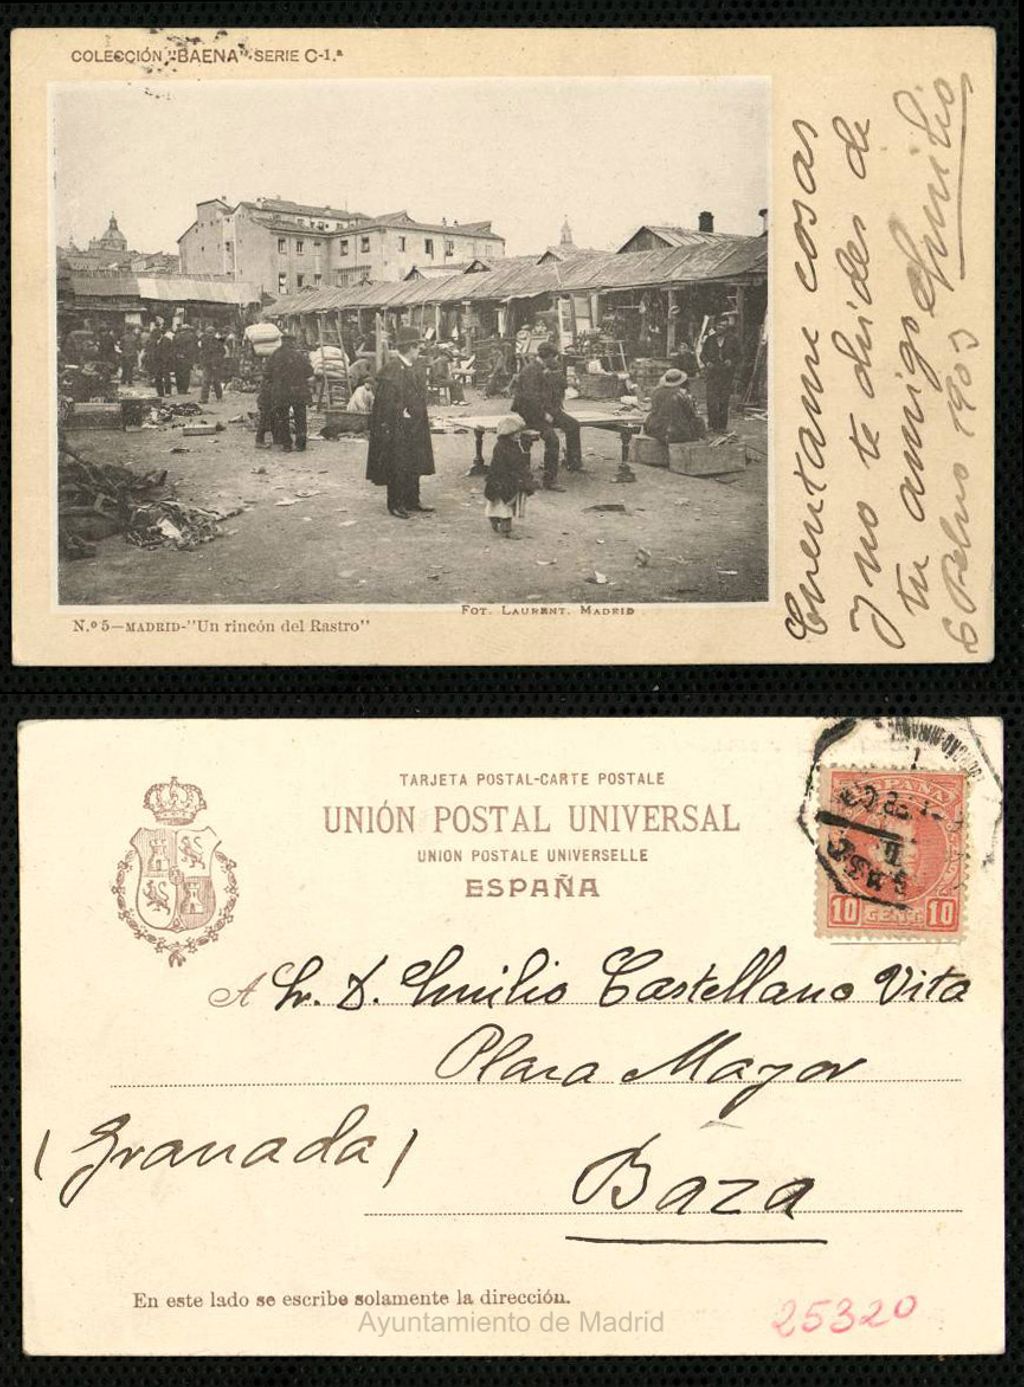 COLECCIÓN "BAENA"-SERIE C-1.ª
FOT. LAURENT. MADRID
N.º 5—MADRID-"Un rincón del Rastro"
Cuentame cosas
y no te olvides de
tu amigo Emilio
6 1903
TARJETA POSTAL-CARTE POSTALE
UNIÓN POSTAL UNIVERSAL
UNION POSTALE UNIVERSELLE
ESPAÑA
ESPAÑA
10 CENT. 10
A Sr. D. Emilio Castellano Vita
Plaza Mayor
(Granada)
Baza
En este lado se escribe solamente la dirección.
Ayuntamiento de Madrid
25320